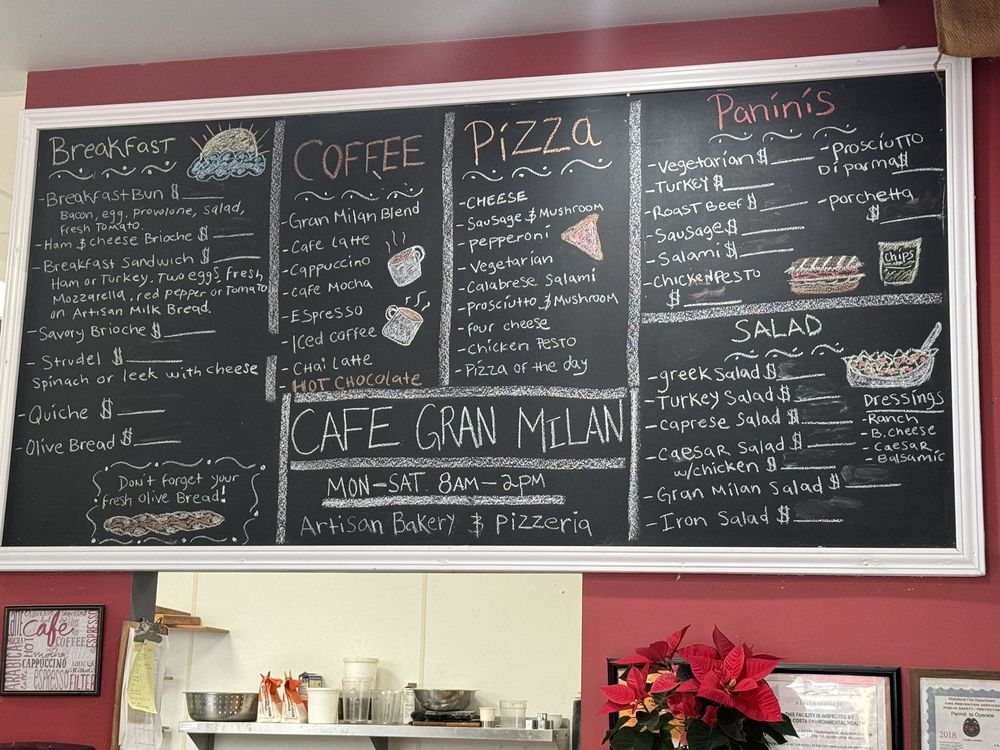 Breakfast
- Breakfast Bun $
Bacon, egg, provolone, salad,
fresh Tomato.
- Ham & cheese Brioche $
- Breakfast Sandwich $
Ham or Turkey. Two eggs, fresh
Mozzarella, red pepper or Tomato
on Artisan Milk Bread.
- Savory Brioche $
- Strudel $
Spinach or leek with cheese
- Quiche $
- Olive Bread $
Don't forget your
fresh olive Bread!
COFFEE
- Gran Milan Blend
- Cafe Latte
- Cappuccino
- Cafe Mocha
- Espresso
- Iced coffee
- Chai Latte
- HOT CHOCOLATE
Pizza
- CHEESE
- Sausage & Mushroom
- pepperoni
- Vegetarian
- Calabrese Salami
- Prosciutto & Mushroom
- four cheese
- Chicken Pesto
- Pizza of the day
CAFE GRAN MILAN
MON-SAT 8AM-2PM
Artisan Bakery & Pizzeria
Paninis
- Vegetarian $
- Turkey $
- Roast Beef $
- Sausage $
- Salami $
- Chicken Pesto
$
- Prosciutto
Di parma $
- porchetta
$
chips
SALAD
- greek Salad $
- Turkey Salad $
- caprese Salad $
- Caesar Salad $
w/chicken $
- Gran Milan Salad $
- Iron Salad $
Dressings
- Ranch
- B. cheese
- Caesar
- Balsamic
Cafe
COFFEE
mocha
CAPPUCCINO
ESPRESSO
FILTER
ARABICA
HOT
ESPRESSO
THIS FACILITY IS INSPECTED BY
COSTA ENVIRONMENTAL HEALTH
FIRE PREVENTION SERVICES
Permit to Operate
2018